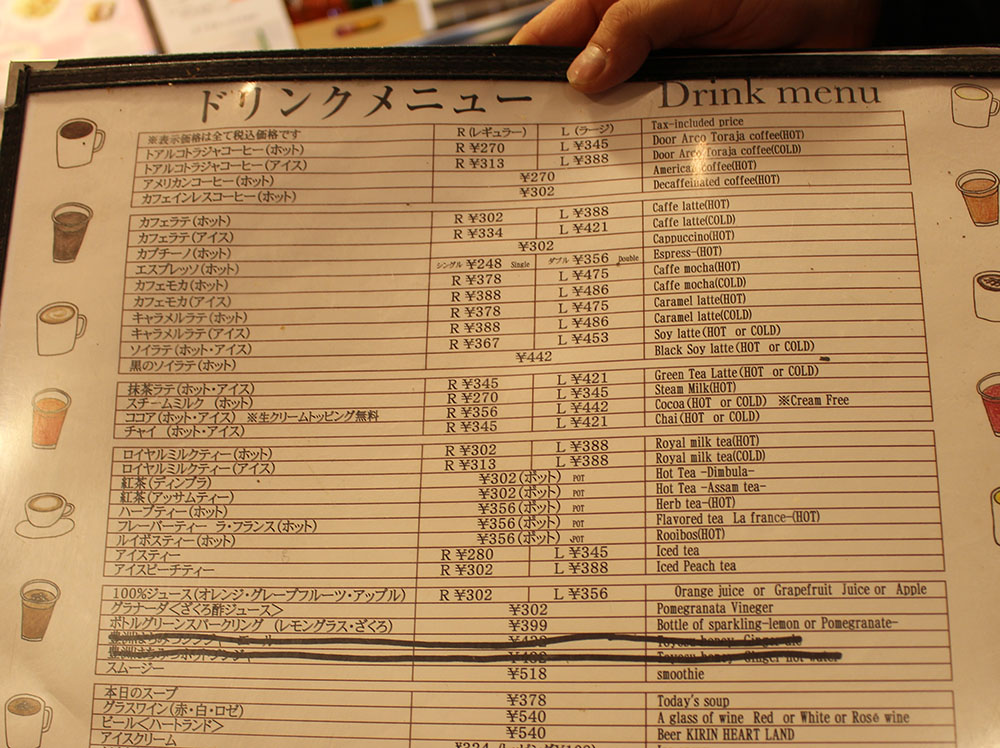 ドリンクメニュー Drink menu
※表示価格は全て税込価格です R(レギュラー) L(ラージ) Tax-included price
トアルコトラジャコーヒー(ホット) R ¥270 L ¥345 Door Arco Toraja coffee(HOT)
トアルコトラジャコーヒー(アイス) R ¥313 L ¥388 Door Arco Toraja coffee(COLD)
アメリカンコーヒー(ホット) ¥270 American coffee(HOT)
カフェインレスコーヒー(ホット) ¥302 Decaffeinated coffee(HOT)
カフェラテ(ホット) R ¥302 L ¥388 Caffe latte(HOT)
カフェラテ(アイス) R ¥334 L ¥421 Caffe latte(COLD)
カプチーノ(ホット) ¥302 Cappuccino(HOT)
エスプレッソ(ホット) シングル ¥248 Single ダブル ¥356 Double Espress-(HOT)
カフェモカ(ホット) R ¥378 L ¥475 Caffe mocha(HOT)
カフェモカ(アイス) R ¥388 L ¥486 Caffe mocha(COLD)
キャラメルラテ(ホット) R ¥378 L ¥475 Caramel latte(HOT)
キャラメルラテ(アイス) R ¥388 L ¥486 Caramel latte(COLD)
ソイラテ(ホット・アイス) R ¥367 L ¥453 Soy latte(HOT or COLD)
黒のソイラテ(ホット) ¥442 Black Soy latte(HOT or COLD)
抹茶ラテ(ホット・アイス) R ¥345 L ¥421 Green Tea Latte(HOT or COLD)
スチームミルク (ホット) R ¥270 L ¥345 Steam Milk(HOT)
ココア(ホット・アイス) ※生クリームトッピング無料 R ¥356 L ¥442 Cocoa(HOT or COLD) ※Cream Free
チャイ (ホット・アイス) R ¥345 L ¥421 Chai(HOT or COLD)
ロイヤルミルクティー(ホット) R ¥302 L ¥388 Royal milk tea(HOT)
ロイヤルミルクティー(アイス) R ¥313 L ¥388 Royal milk tea(COLD)
紅茶(ディンブラ) ¥302(ポット) POT Hot Tea -Dimbula-
紅茶(アッサムティー) ¥302(ポット) POT Hot Tea -Assam tea-
ハーブティー(ホット) ¥356(ポット) POT Herb tea-(HOT)
フレーバーティー ラ・フランス(ホット) ¥356(ポット) POT Flavored tea La france-(HOT)
ルイボスティー(ホット) ¥356(ポット) POT Rooibos(HOT)
アイスティー R ¥280 L ¥345 Iced tea
アイスピーチティー R ¥302 L ¥388 Iced Peach tea
100%ジュース(オレンジ・グレープフルーツ・アップル) R ¥302 L ¥356 Orange juice or Grapefruit Juice or Apple
グラナーダ<ざくろ酢ジュース> ¥302 Pomegranata Vineger
ボトルグリーンスパークリング (レモングラス・ざくろ) ¥399 Bottle of sparkling-lemon or Pomegranate-
¥432 Toyosu honey Ginger ale
¥432 Toyosu honey Ginger hot water
スムージー ¥518 smoothie
本日のスープ ¥378 Today's soup
グラスワイン(赤・白・ロゼ) ¥540 A glass of wine Red or White or Rosé wine
ビール<ハートランド> ¥540 Beer KIRIN HEART LAND
アイスクリーム